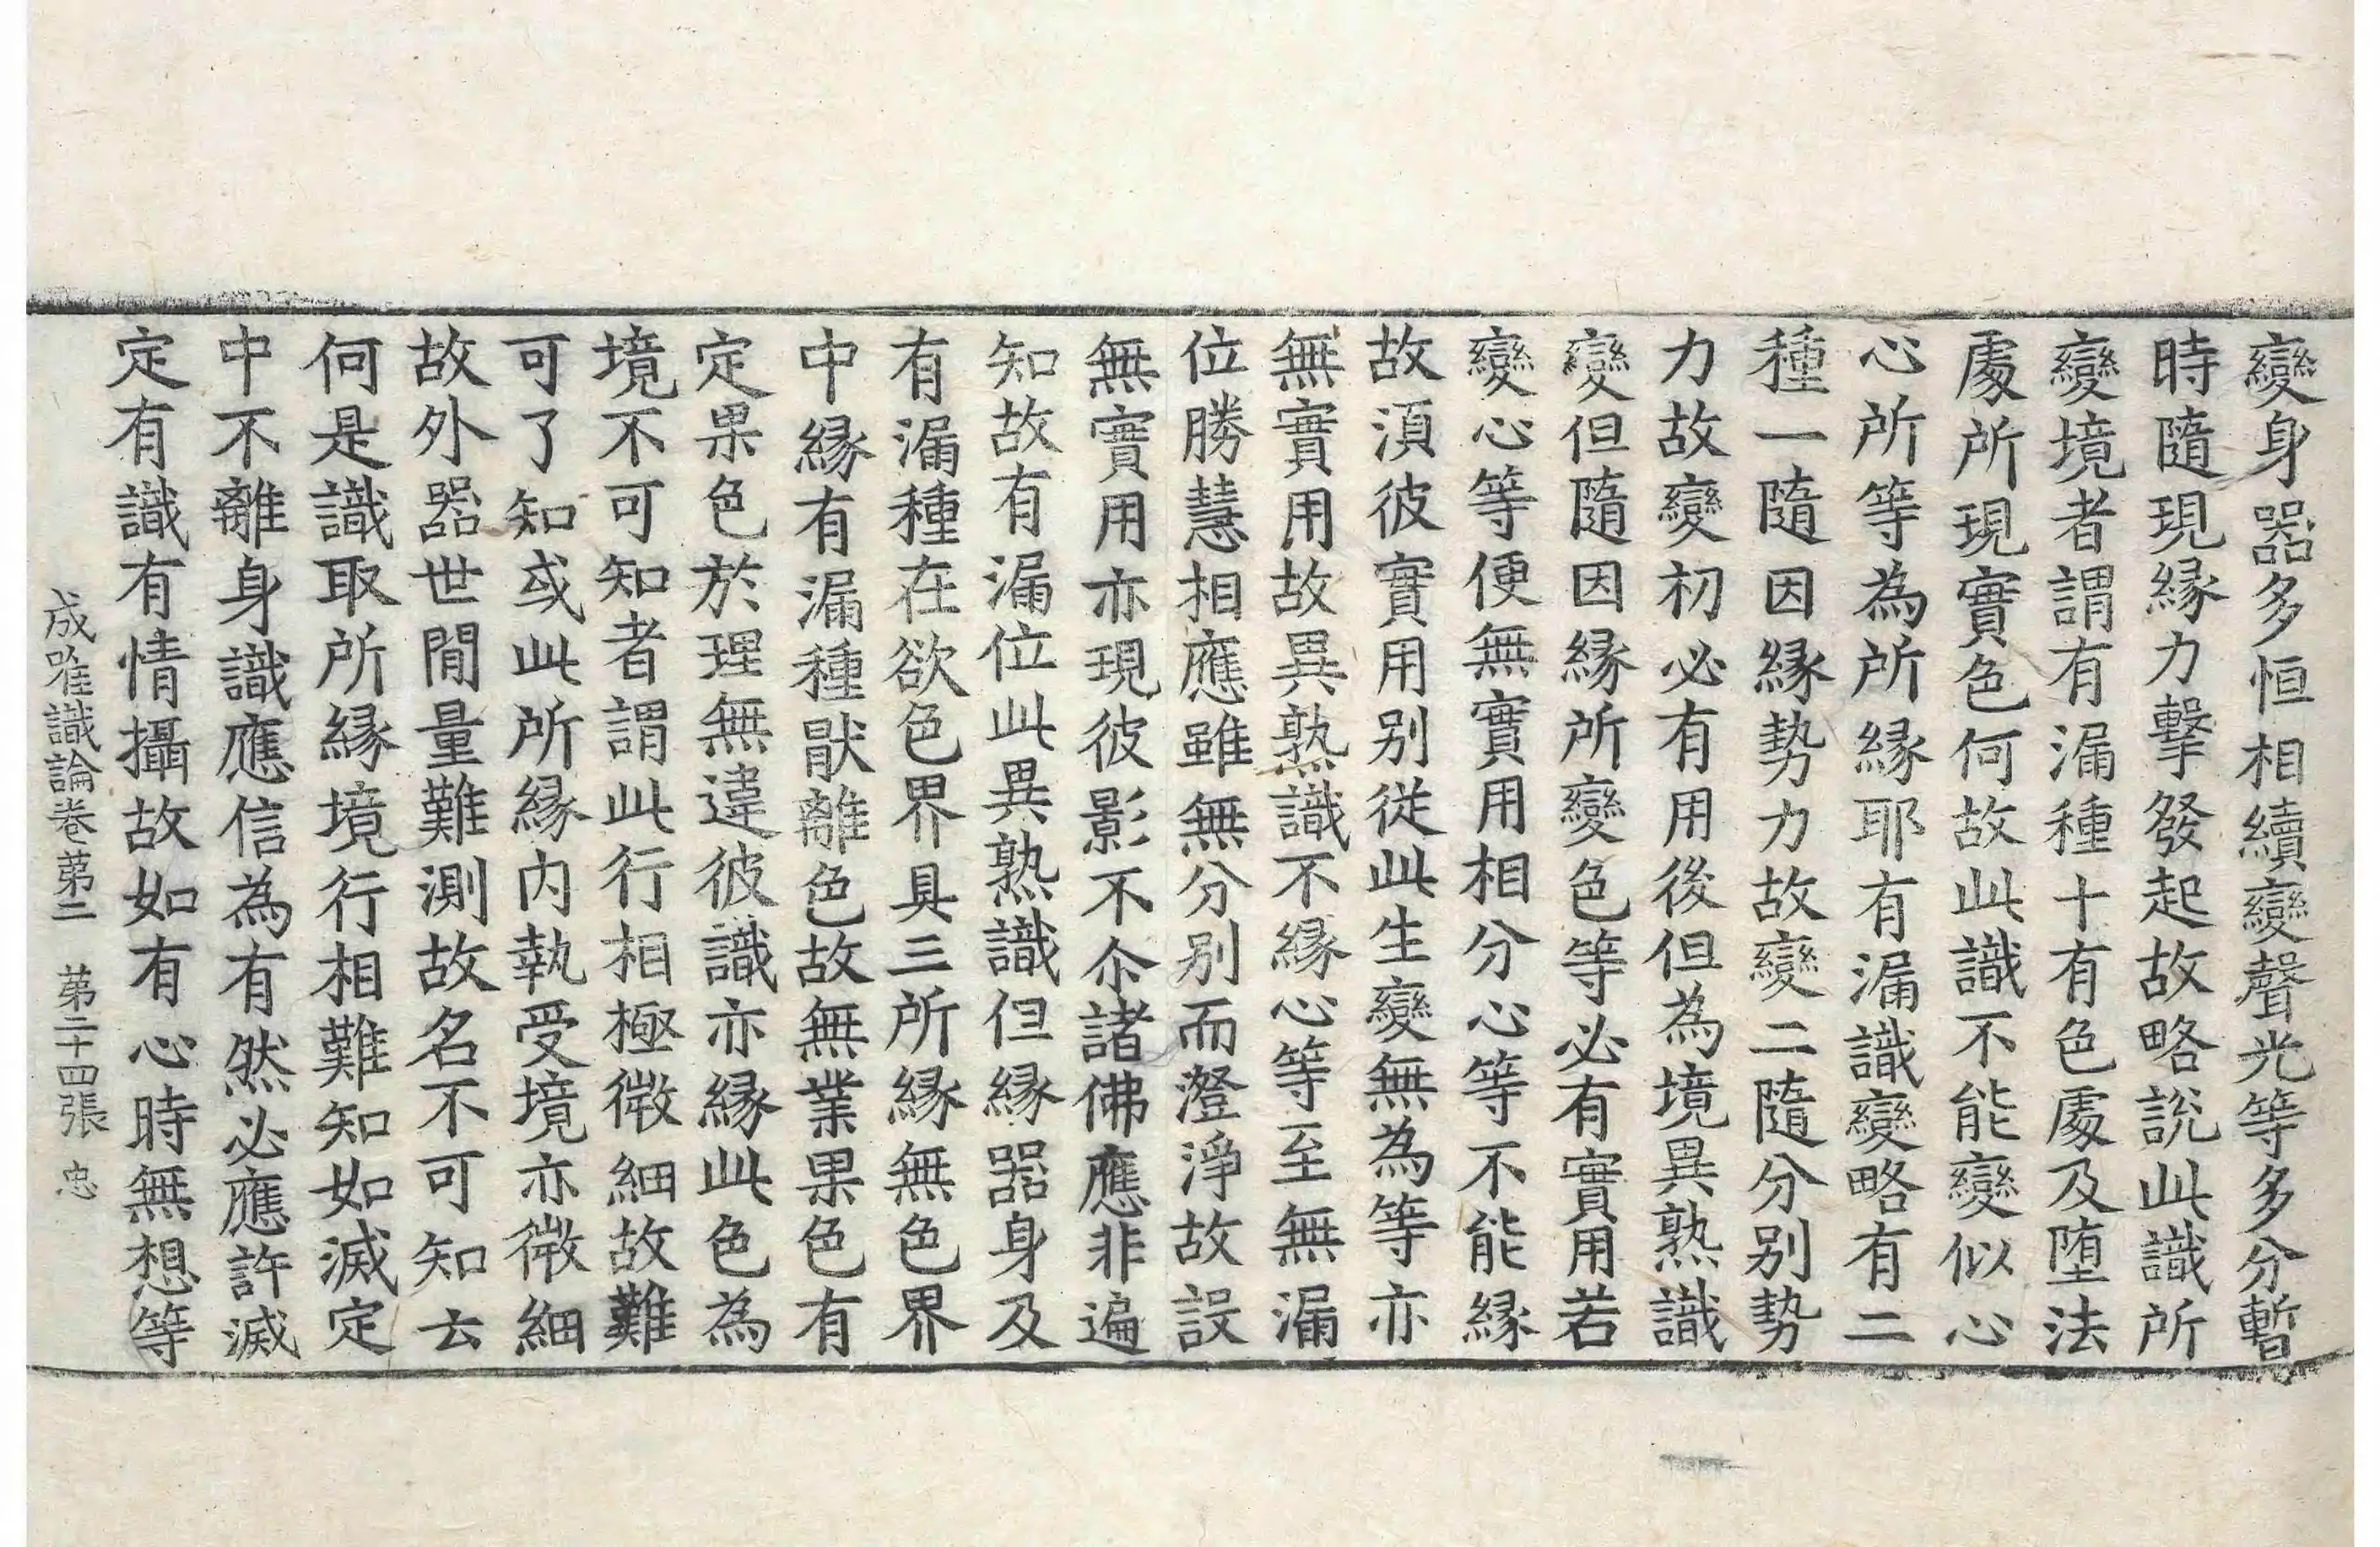 變身器多恒相續變聲光等多分暫
時隨現緣力擊發起故略說此識所
變境者謂有漏種十有色處及墮法
處所現實色何故此識不能變似心
心所等為所緣耶有漏識變略有二
種一隨因緣勢力故變二隨分別勢
力故變初必有用後但為境異熟識
變但隨因緣所變色等必有實用若
變心等便無實用相分心等不能緣
故湏彼實用別從此生變無為等亦
無實用故異熟識不緣心等至無漏
位勝慧相應雖無分別而澄淨故設
無實用亦現彼影不尒諸佛應非遍
知故有漏位此異熟識但緣器身及
有漏種在欲色界具三所緣無色界
中緣有漏種猒離色故無業果色有
定果色於理無違彼識亦緣此色為
境不可知者謂此行相極微細故難
可了知或此所緣內執受境亦微細
故外器世間量難測故名不可知云
何是識取所緣境行相難知如滅定
中不離身識應信為有然必應許滅
定有識有情攝故如有心時無想等
成唯識論卷第二　第二十四張　忠